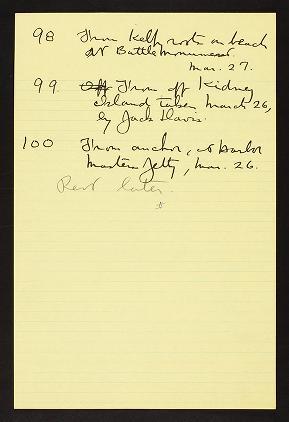 98 From kelp roots on beach
at Battle Monument.
Mar. 27.
99. Off From off Kidney
Island taken March 26,
by Jack Davis.
100 From anchor, at Harbor
Masters Jetty, Mar. 26.
Rest later.